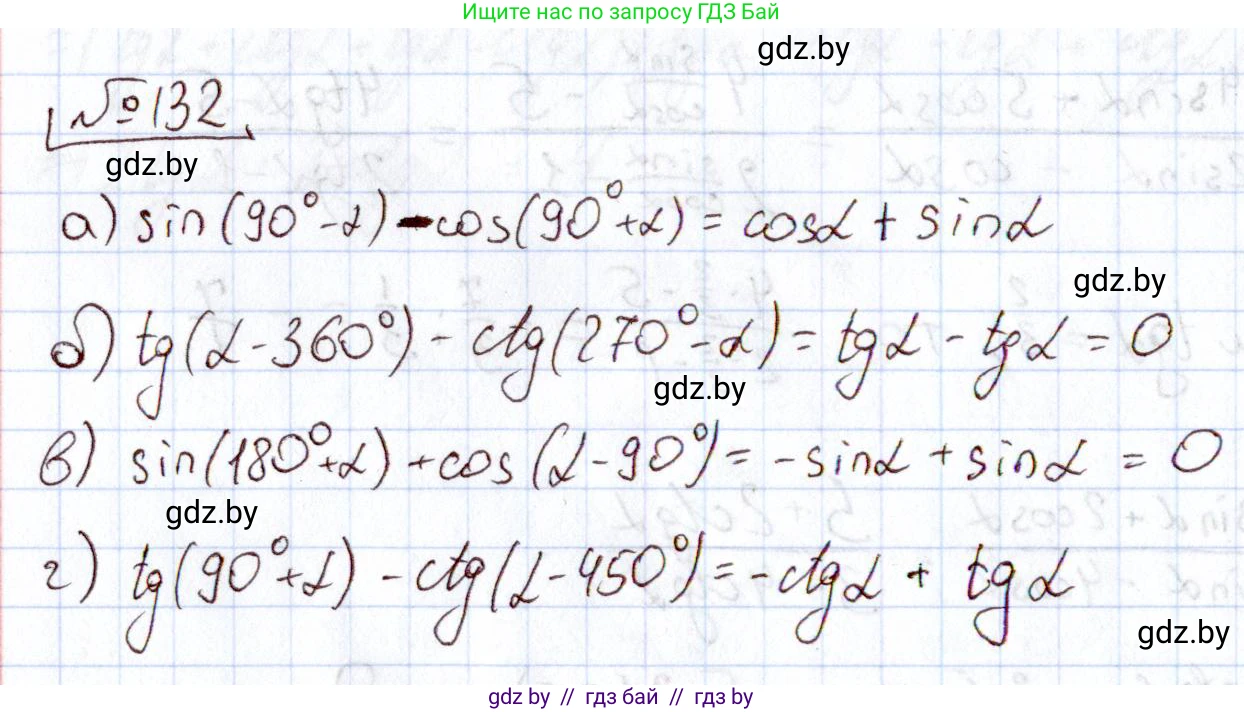 Ищите нас по запросу ГДЗ Бай
gdz.by
№132
gdz.by
а) sin(90°-α) - cos(90°+α) = cosα + sinα
gdz.by
б) tg(α-360°) - ctg(270°-α) = tgα - tgα = 0
gdz.by
в) sin(180°+α) + cos(α-90°) = -sinα + sinα = 0
gdz.by
г) tg(90°+α) - ctg(α-450°) = -ctgα + tgα
gdz.by
gdz by // гдз бай // гдз by